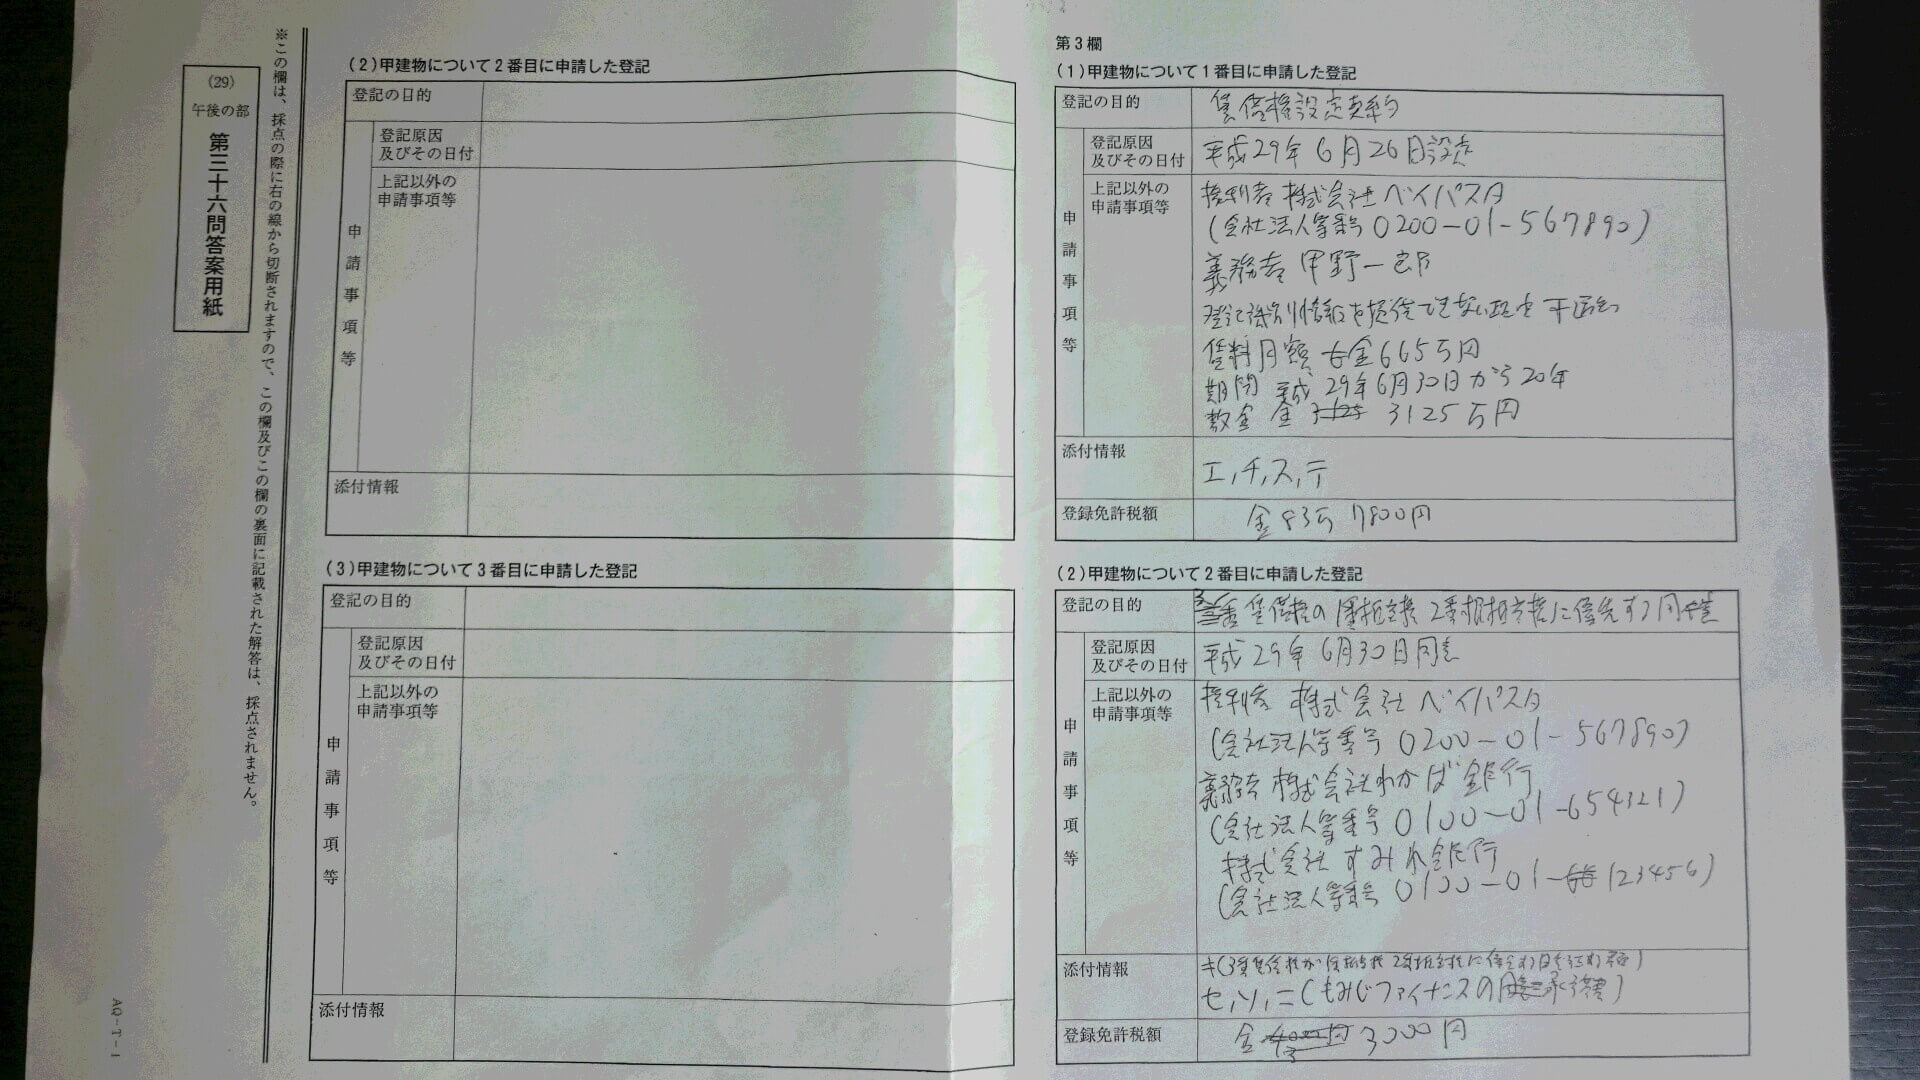 ※この欄は、採点の際に右の線から切断されますので、この欄及びこの欄の裏面に記載された解答は、採点されません。
(29)
午後の部
第三十六問答案用紙
AQ-T-1
(2)甲建物について2番目に申請した登記
登記の目的
申請事項等
登記原因
及びその日付
上記以外の
申請事項等
添付情報
(3)甲建物について3番目に申請した登記
登記の目的
申請事項等
登記原因
及びその日付
上記以外の
申請事項等
添付情報
第3欄
(1)甲建物について1番目に申請した登記
登記の目的
賃借権設定契約
申請事項等
登記原因
及びその日付
平成29年6月26日設定
上記以外の
申請事項等
権利者 株式会社ベイパスタ
(会社法人等番号 0200-01-567890)
義務者 甲野一郎
登記識別情報を提供できない理由 不通知
賃料月額 金665万円
期間 平成29年6月30日から20年
敷金 金 3125万円
添付情報
エ,チ,ス,テ
登録免許税額
金83万7800円
(2)甲建物について2番目に申請した登記
登記の目的
賃借権の 2番根抵当権に優先する同意
申請事項等
登記原因
及びその日付
平成29年6月30日同意
上記以外の
申請事項等
権利者 株式会社ベイパスタ
(会社法人等番号 0200-01-567890)
義務者 株式会社わかば銀行
(会社法人等番号 0100-01-654321)
株式会社すみれ銀行
(会社法人等番号 0100-01-123456)
添付情報
キ(3番賃借権が 優先する
セ,ソ,ニ(もみじファイナンスの承諾書)
登録免許税額
金 3000円